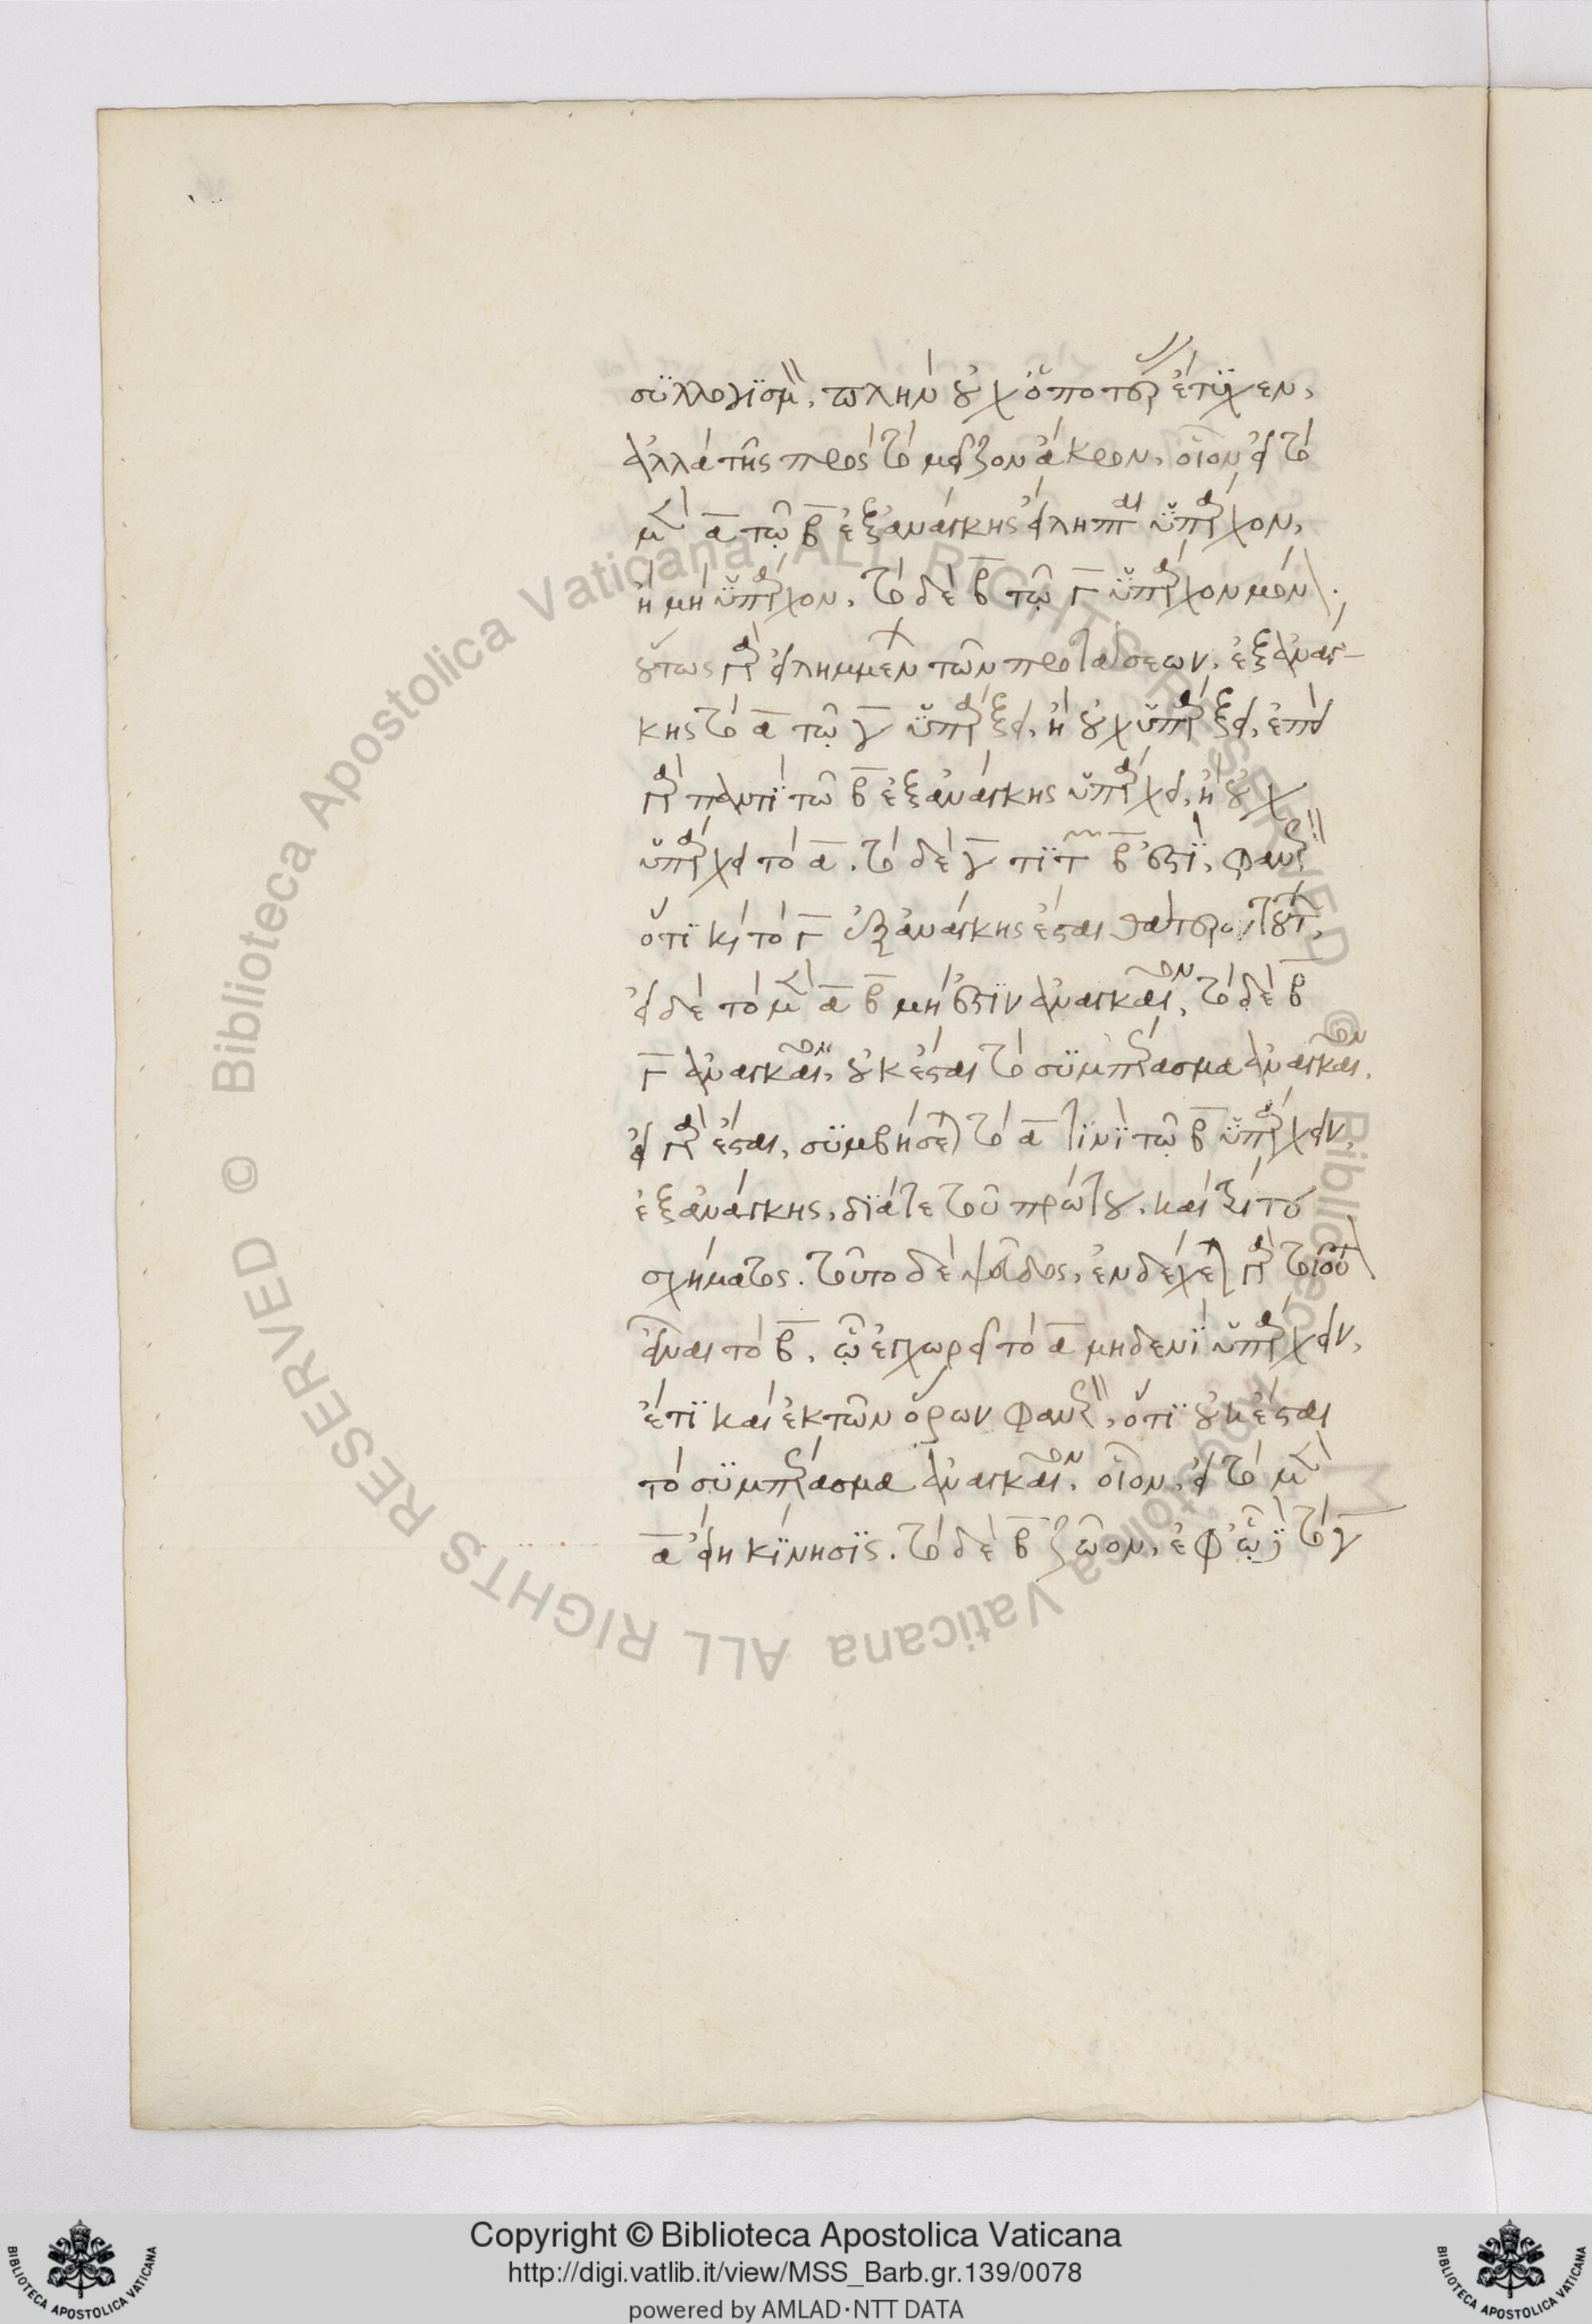 συλλογισμὸς, πλὴν οὐχ ὁποτέρας ἔτυχεν,
ἀλλὰ τῆς πρὸς τὸ μεῖζον ἄκρον, οἷον εἰ τὸ
μὲν α τῷ β ἐξανάγκης εἴληπται ὑπάρχον,
ἢ μὴ ὑπάρχον, τὸ δὲ β τῷ Γ ὑπάρχον μόνον.
οὕτως γὰρ εἰλημμένων τῶν προτάσεων, ἐξανάγ-
κης τὸ α τῷ γ ὑπάρξει, ἢ οὐχ ὑπάρξει, ἐπεὶ
γὰρ παντὶ τῷ β ἐξανάγκης ὑπάρχει, ἢ οὐχ
ὑπάρχει τὸ α, τὸ δὲ γ τὶ τῶν β ἐστὶ, φανερὸν
ὅτι καὶ τὸ Γ ἐξανάγκης ἔσται θάτερον τούτων,
εἰ δὲ τὸ μὲν α β μὴ ἐστὶν ἀναγκαῖον, τὸ δὲ β
Γ ἀναγκαῖον, οὐκ ἔσται τὸ συμπέρασμα ἀναγκαῖον.
εἰ γὰρ ἔσται, συμβήσεται τὸ α τινὶ τῷ β ὑπάρχειν,
ἐξανάγκης, διά τε τοῦ πρώτου, καὶ διὰ τοῦ
σχήματος. τοῦτο δὲ ψεῦδος, ἐνδέχεται γὰρ τοιοῦτον
εἶναι τὸ β, ᾧ ἐγχωρεῖ τὸ α μηδενὶ ὑπάρχειν,
ἔτι καὶ ἐκ τῶν ὅρων φανερὸν, ὅτι οὐκ ἔσται
τὸ συμπέρασμα ἀναγκαῖον, οἷον, εἰ τὸ μὲν
α εἴη κίνησις. τὸ δὲ β ζῷον, ἐφ' ᾧ δὲ τὸ γ
Copyright © Biblioteca Apostolica Vaticana
http://digi.vatlib.it/view/MSS_Barb.gr.139/0078
powered by AMLAD·NTT DATA